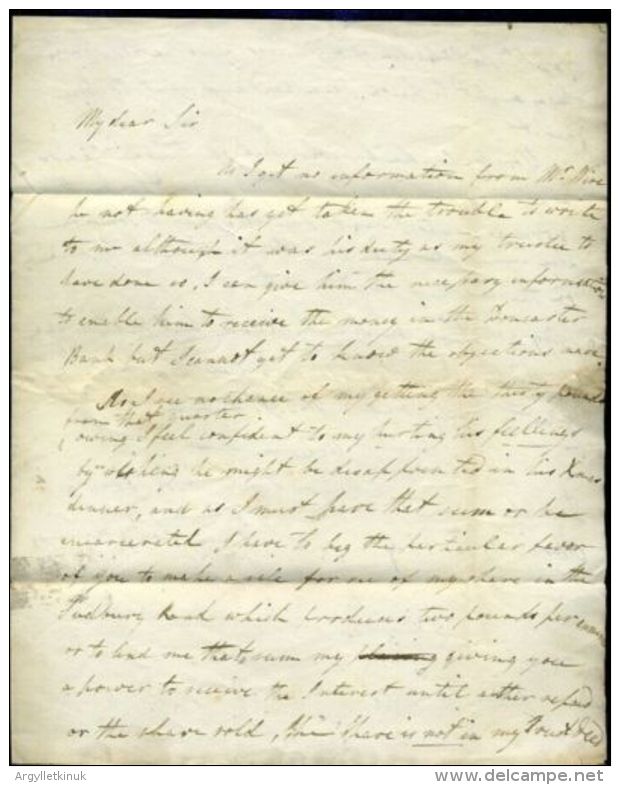 My dear Sir
As I get no information from Mr.
he not having has yet taken the trouble to write
to me although it was his duty as my trustee to
have done so, I can give him the necessary information
to enable him to receive the money in the Doncaster
Bank but I cannot get to know the objections
As I see no chance of my getting the thirty pounds
from that quarter
owing I feel confident to my hurting his feelings
by he might be disappointed in his Xmas
dinner, and as I must have that sum or be
incarcerated I have to beg the particular favor
of you to make a sale for me of my share in the
Bank which produces two pounds per annum
or to lend me that sum my giving you
a power to receive the Interest until either repaid
or the share sold, the share is not in my Trust Deed
Argylletkinuk
delcampe.net